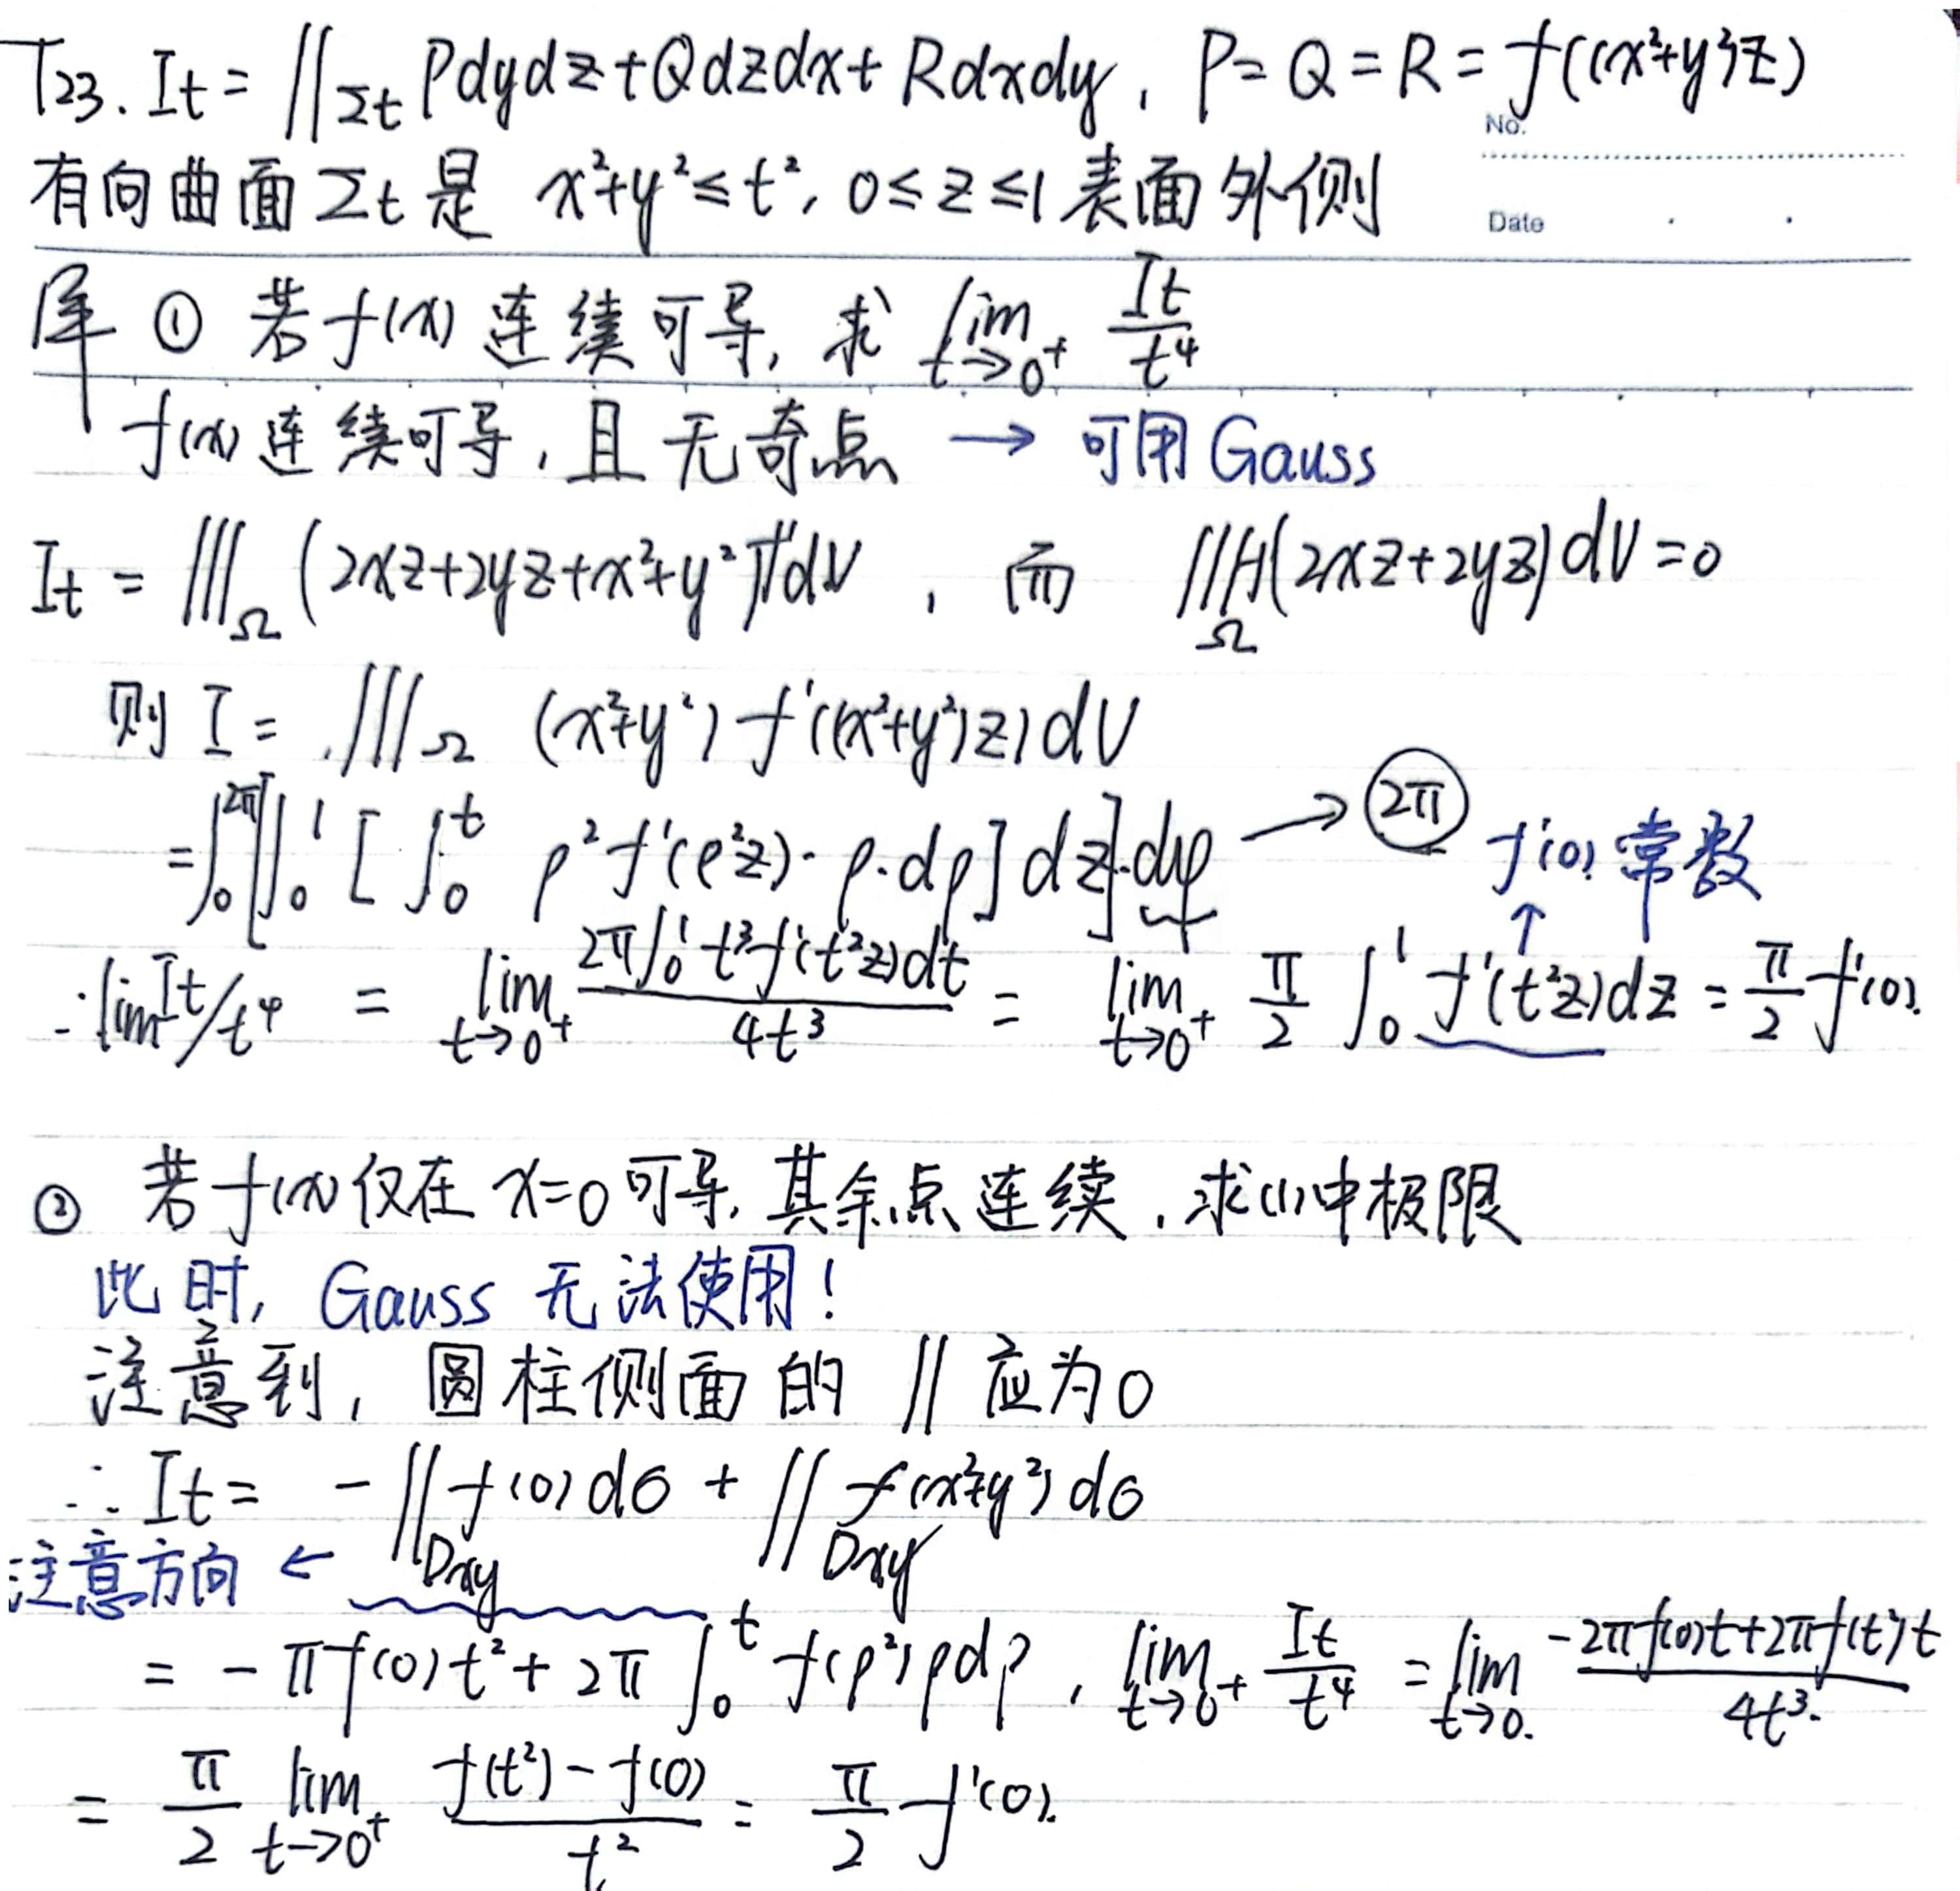 T23. It = ∬Σt Pdydz+Qdzdx+Rdxdy, P=Q=R=f((x²+y²)z)
No.
有向曲面Σt是 x²+y²≤t², 0≤z≤1表面外侧
Date
解 ① 若f(x)连续可导, 求 lim t→0⁺ It/t⁴
f(x)连续可导, 且无奇点 → 可用Gauss
It = ∭Ω (2xz+2yz+x²+y²)f'dV , 而 ∭Ω f'(2xz+2yz)dV=0
则 I = ∭Ω (x²+y²)f'((x²+y²)z)dV
=∫₀^2π[∫₀¹[∫₀^t ρ²f'(ρ²z)·ρ·dρ]dz]·dφ → 2π
f'(0)常数
↑
∴lim It/t⁴ = lim t→0⁺ 2π∫₀¹t³f'(t²z)dt/4t³ = lim t→0⁺ π/2 ∫₀¹f'(t²z)dz = π/2 f'(0).
② 若f(x)仅在x=0可导, 其余点连续, 求(1)中极限
此时, Gauss无法使用!
注意到, 圆柱侧面的∬应为0
∴ It = -∬Dxy f(0)dσ + ∬Dxy f(x²+y²)dσ
注意方向 ←
= -πf(0)t²+2π∫₀^t f(ρ²)ρdρ, lim t→0⁺ It/t⁴ = lim t→0. -2πf(0)t+2πf(t²)t/4t³.
= π/2 lim t→0⁺ f(t²)-f(0)/t² = π/2 f'(0).